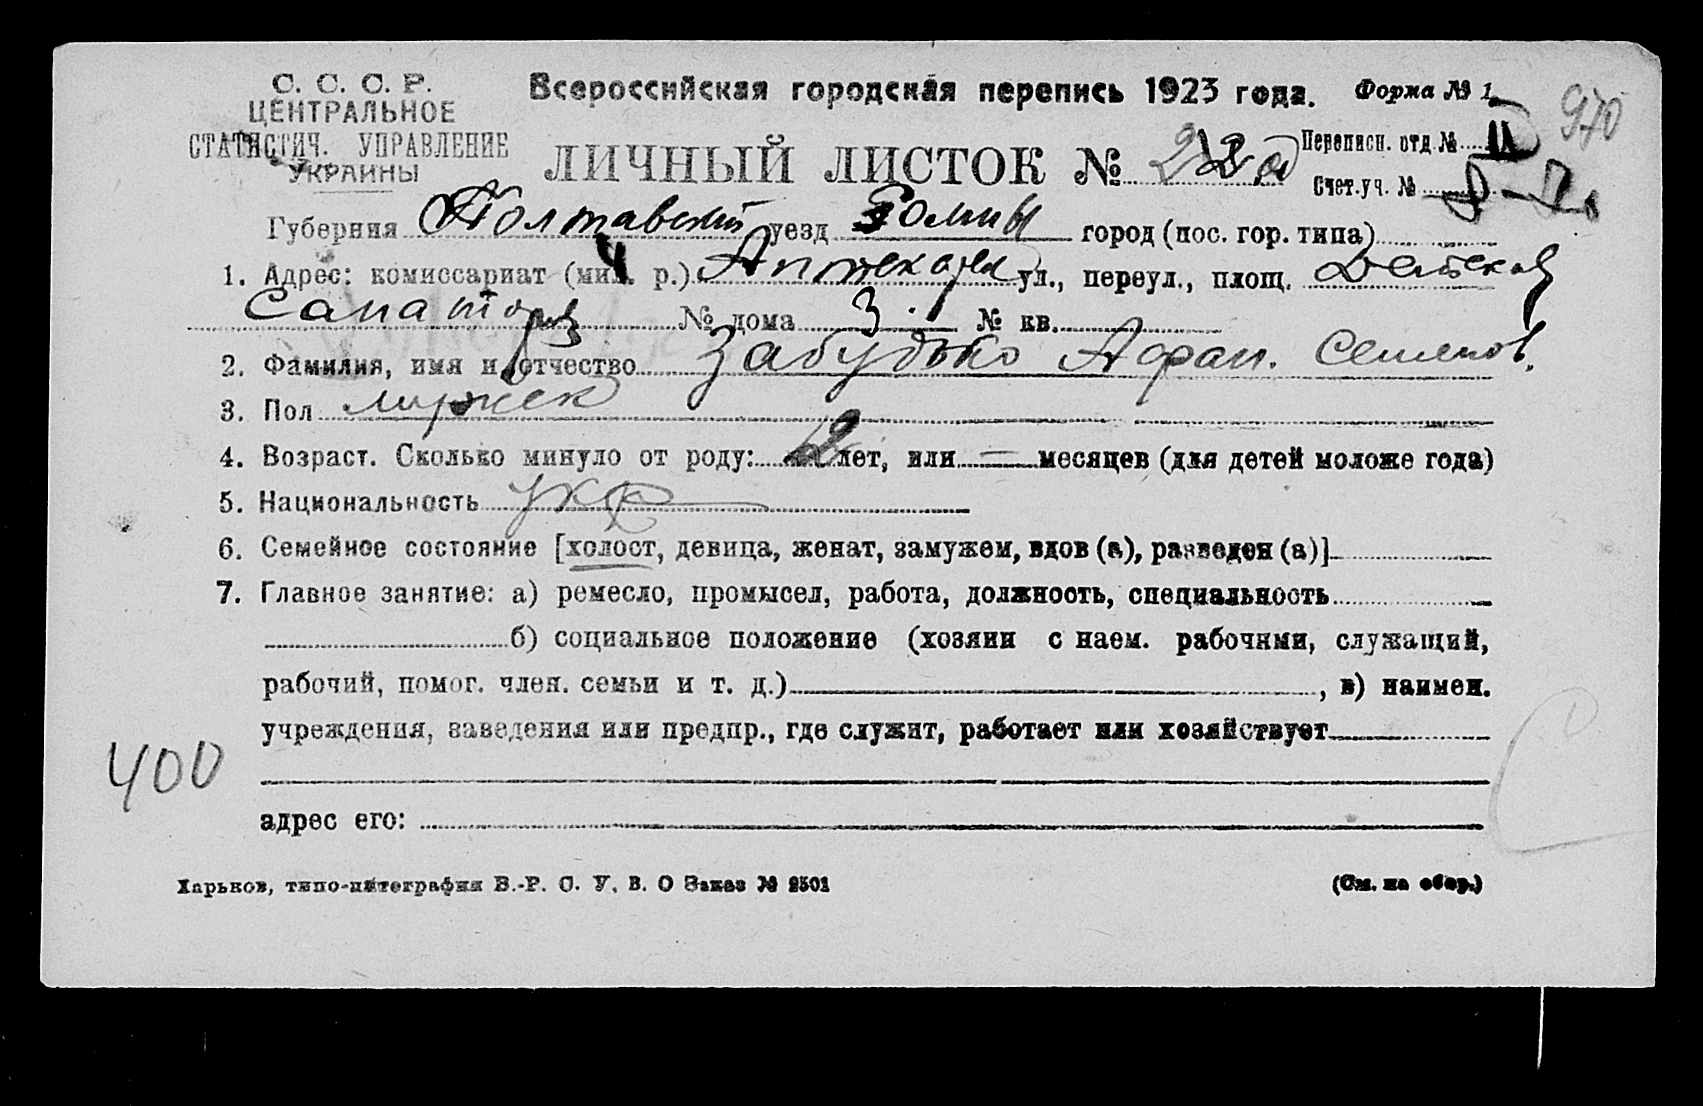 С. С. С. Р.
ЦЕНТРАЛЬНОЕ
СТАТИСТИЧ. УПРАВЛЕНИЕ
УКРАИНЫ
Всероссийская городская перепись 1923 года. Форма № 1
970
ЛИЧНЫЙ ЛИСТОК №
Переписн. отд. №
Счет. уч. №
Губерния Полтавский уезд Ромны город (пос. гор. типа)
1. Адрес: комиссариат (мил. р.) 4 ул., переул., площ. Детский
Санаторз № дома 3 № кв.
2. Фамилия, имя и отчество Забудько Афан. Семенов.
3. Пол мужск
4. Возраст. Сколько минуло от роду: 12 лет, или — месяцев (для детей моложе года)
5. Национальность укр
6. Семейное состояние [холост, девица, женат, замужем, вдов (а), разведен (а)]
7. Главное занятие: а) ремесло, промысел, работа, должность, специальность
б) социальное положение (хозяин с наем. рабочими, служащий,
рабочий, помог. член. семьи и т. д.) , в) наимен.
учреждения, заведения или предпр., где служит, работает или хозяйствует
400
адрес его:
Харьков, типо-литография В.-Р. С. У. В. О Заказ № 2501 (См. на обор.)